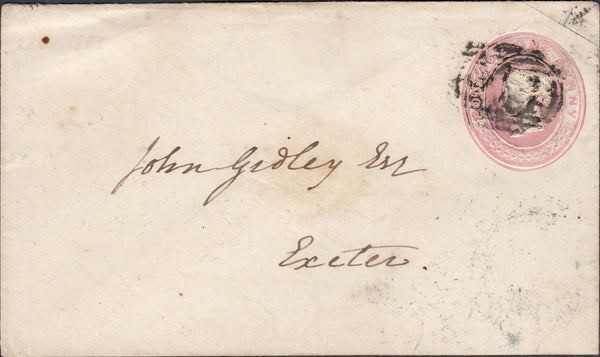 John Gidley Esr
Exeter.